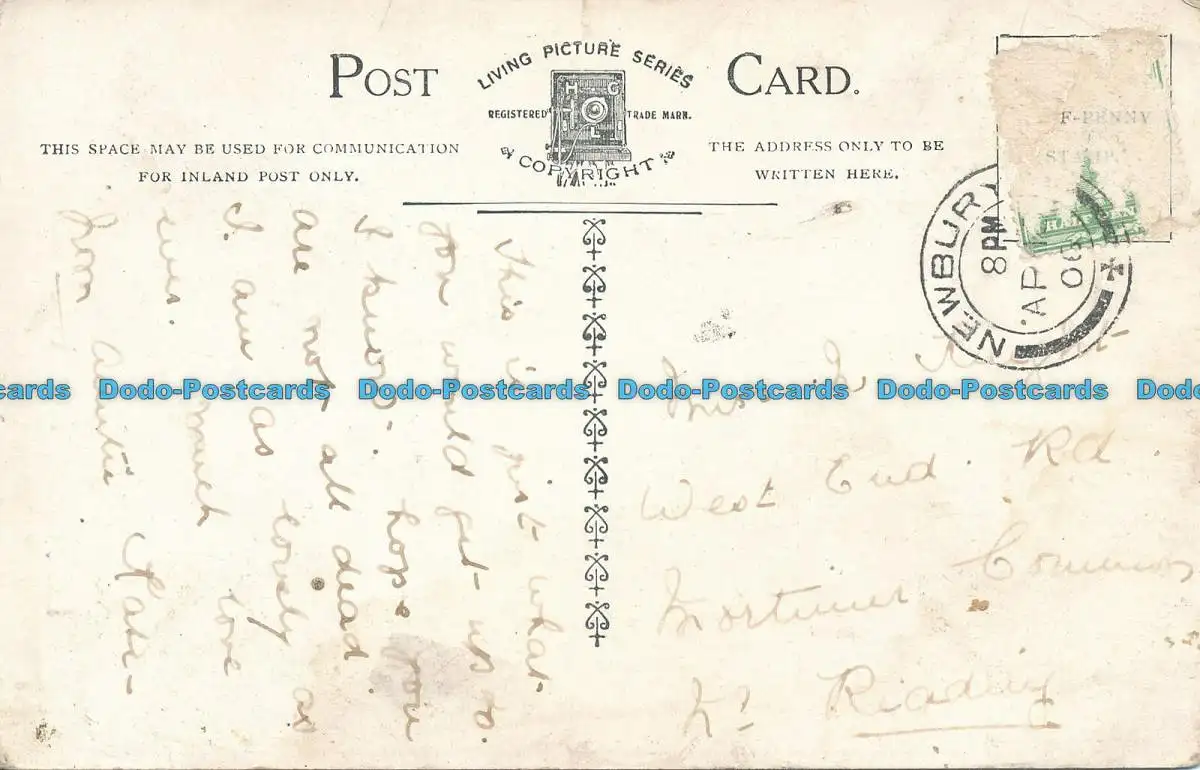 POST CARD.
LIVING PICTURE SERIES
H G
L
REGISTERED TRADE MARK.
COPYRIGHT
THIS SPACE MAY BE USED FOR COMMUNICATION
FOR INLAND POST ONLY.
THE ADDRESS ONLY TO BE
WRITTEN HERE.
F-PENNY
STAMP
NEWBURY
8 PM
AP
06
This is just what
you would get up to
I know. I hope you
are not all dead
I am as lovely as
ever. much love
from Auntie Kate
Miss
West End Rd
Mortimer Common
Nr Reading
Dodo-Postcards Dodo-Postcards Dodo-Postcards Dodo-Postcards